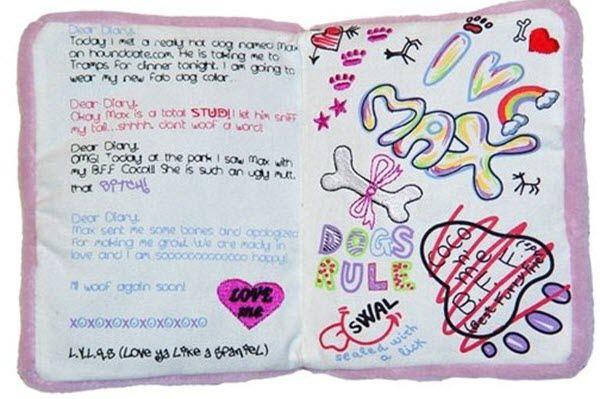 Dear Diary,
Today I met a really hot dog named Max
on hounddate.com. He is taking me to
Tramps for dinner tonight. I am going to
wear my new fab dog collar.
Dear Diary,
Okay Max is a total STUD!! I let him sniff
my tail...shhhh. dont woof a word!
Dear Diary,
OMG! Today at the park I saw Max with
my B.F.F Coco!!! She is such an ugly mutt.
that BITCH!
Dear Diary,
Max sent me some bones and apologized
for making me growl. We are madly in
love and I am soooooooooooo happy!
I'll woof again soon!
LOVE
me
XOXOXOXOXOXOXO
L.Y.L.A.S (Love ya Like a SpanieL)
I
MAX
DOGS
RULE
SWAL
sealed with
a lick
COCO
'n'
ME
B.F.F.
(Best Furry Friends)